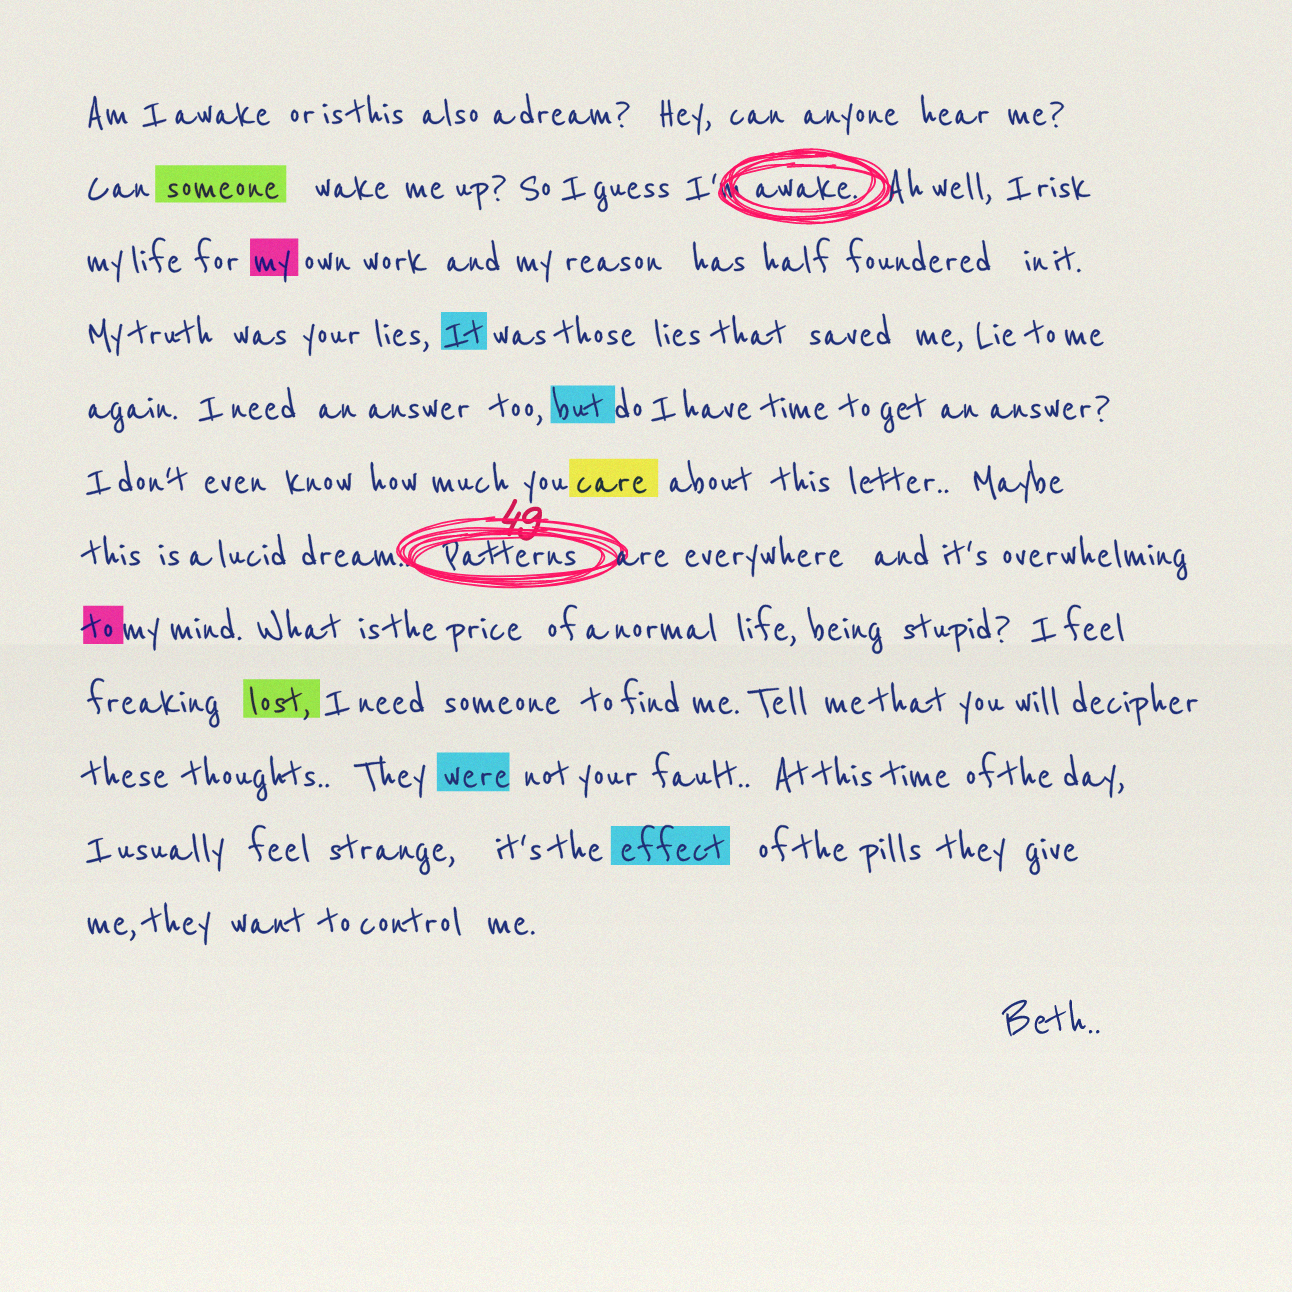 Am I awake or is this also a dream? Hey, can anyone hear me?
Can someone wake me up? So I guess I'm awake. Ah well, I risk
my life for my own work and my reason has half foundered in it.
My truth was your lies, It was those lies that saved me, Lie to me
again. I need an answer too, but do I have time to get an answer?
I don't even know how much you care about this letter.. Maybe
49
this is a lucid dream.. Patterns are everywhere and it's overwhelming
to my mind. What is the price of a normal life, being stupid? I feel
freaking lost, I need someone to find me. Tell me that you will decipher
these thoughts.. They were not your fault.. At this time of the day,
I usually feel strange, it's the effect of the pills they give
me, they want to control me.
Beth..